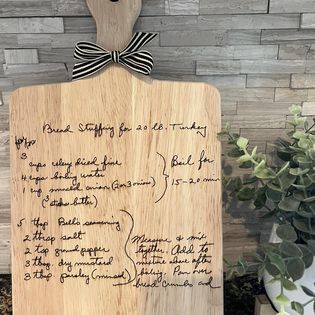 Bread Stuffing for 20 lb. Turkey
3 cups celery diced fine
4 cups boiling water
1 cup minced onion (2 or 3 onions)
(2 sticks butter)
Boil for
15-20 min
5 tbsp Bell's seasoning
2 tbsp salt
2 tsp ground pepper
3 tbsp. dry mustard
3 tbsp parsley (minced)
Measure & mix
together. Add to
mixture above after
boiling. Pour over
bread crumbs and